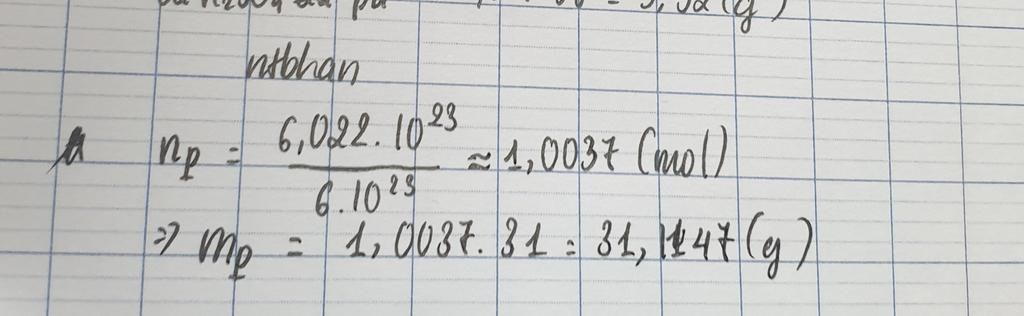 = 3,02 (g)
ntbhan
n_p = \frac{6,022.10^{23}}{6.10^{23}} ≈ 1,0037 (mol)
=> m_p = 1,0037.31 = 31,1147 (g)